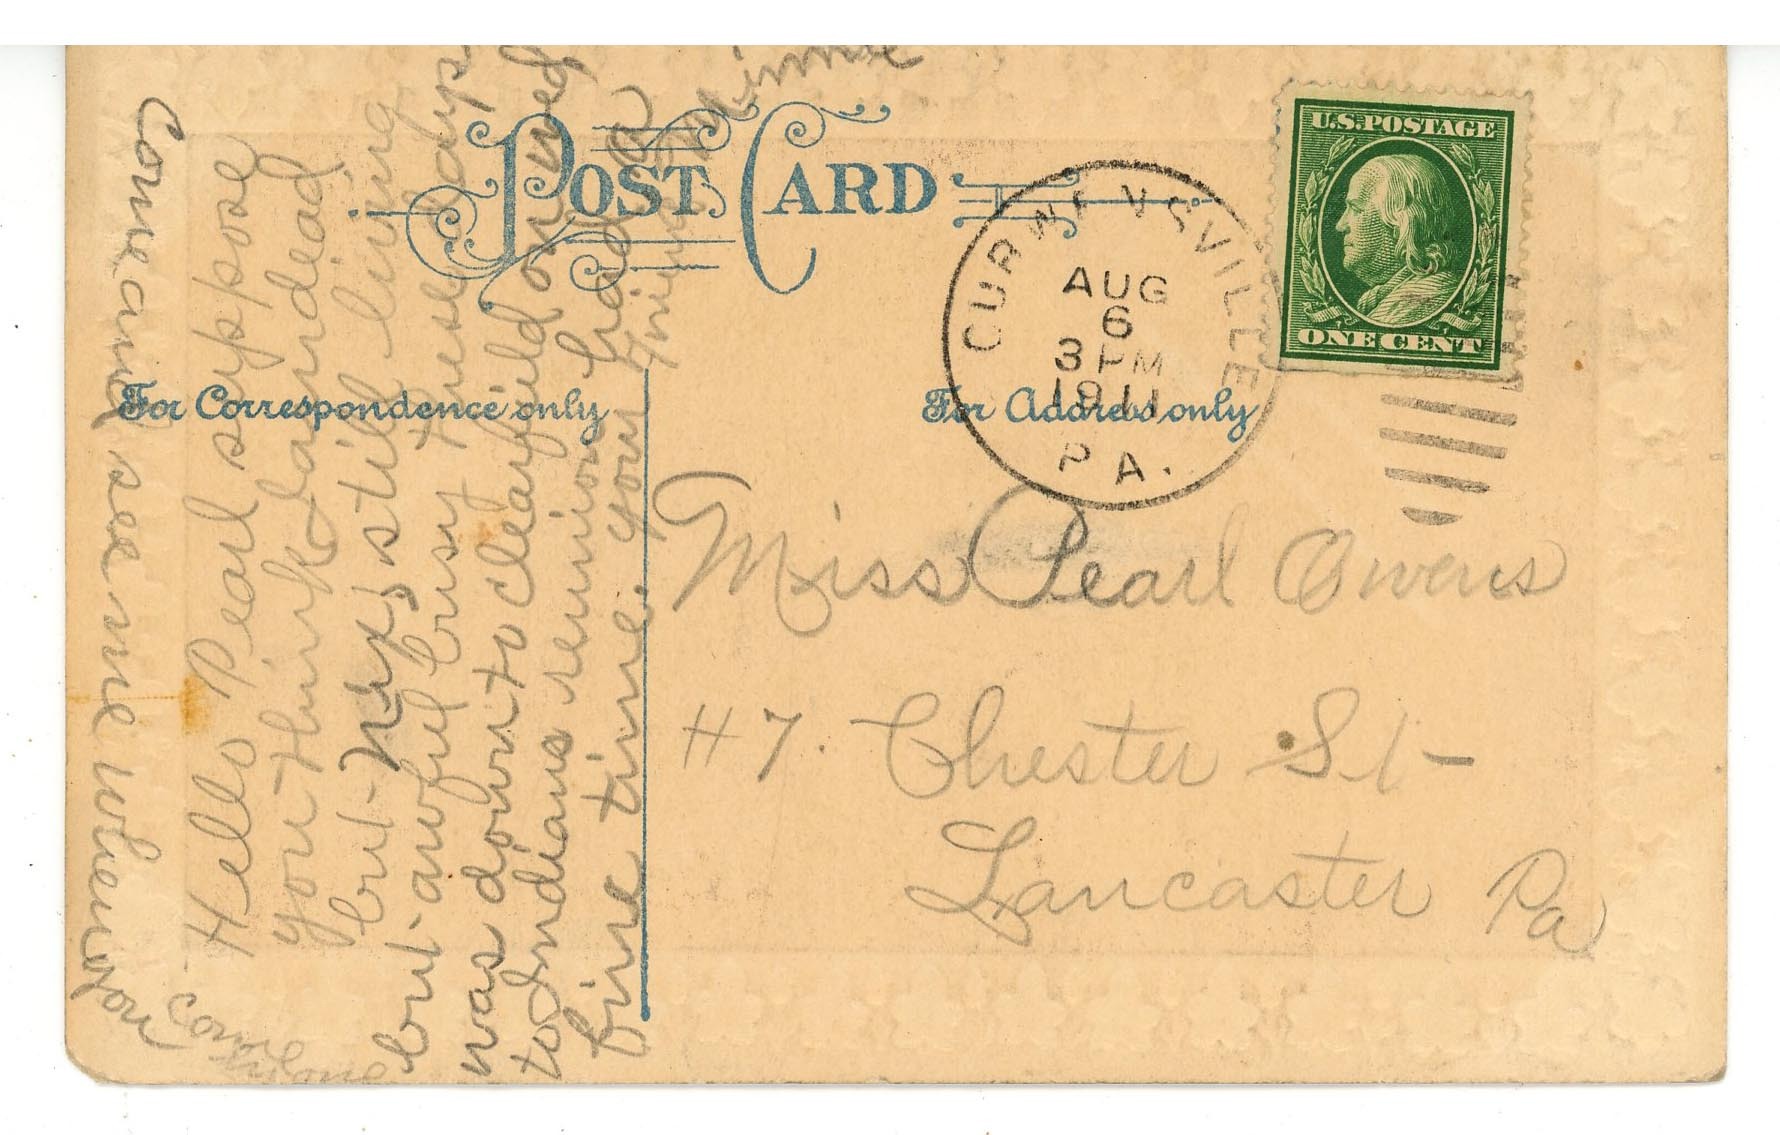 POST CARD
For Correspondence only
For Address only
U.S. POSTAGE
ONE CENT
CURWENSVILLE
AUG
6
3 PM
1911
PA.
Miss Pearl Owens
#7. Chester St-
Lancaster Pa
Hello Pearl suppose
you think I am dead
but still living
but awful busy these days
was down to clearfield on wed
to Indians reunion had a
fine time. your friend Minnie
Come and see me when